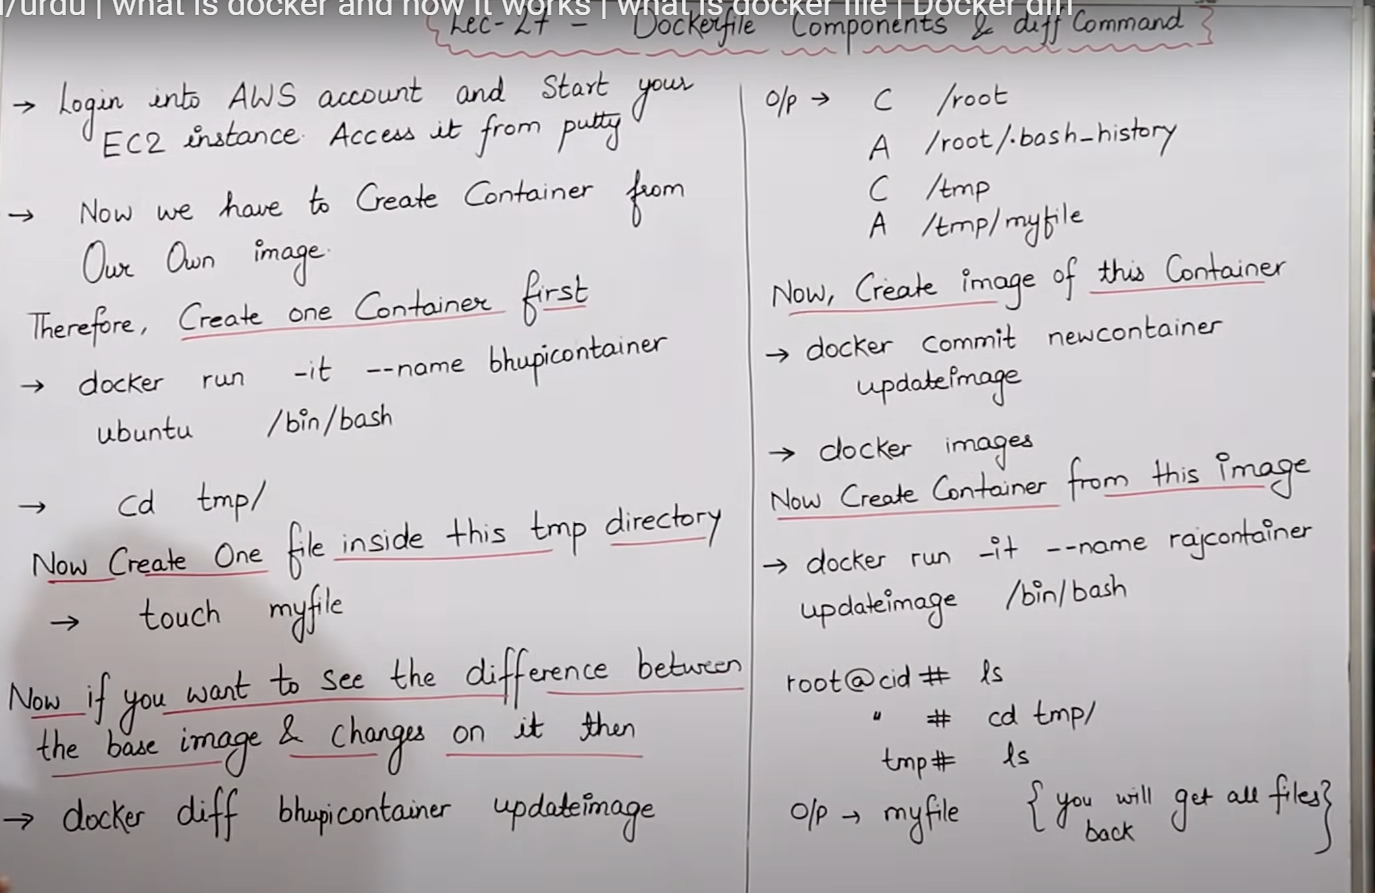 /urdu | what is docker and how it works | what is docker file | Docker diff
Lec-27 - Dockerfile Components & diff Command
→ Login into AWS account and Start your
EC2 instance. Access it from putty
→ Now we have to Create Container from
Our Own image.
Therefore, Create one Container first
→ docker run -it --name bhupicontainer
ubuntu /bin/bash
→ cd tmp/
Now Create One file inside this tmp directory
→ touch myfile
Now if you want to see the difference between
the base image & changes on it then
→ docker diff bhupicontainer updateimage
O/p → C /root
A /root/.bash_history
C /tmp
A /tmp/myfile
Now, Create image of this Container
→ docker commit newcontainer
updateimage
→ docker images
Now Create Container from this image
→ docker run -it --name rajcontainer
updateimage /bin/bash
root@cid# ls
" # cd tmp/
tmp# ls
O/p → myfile {you will get all files
back}